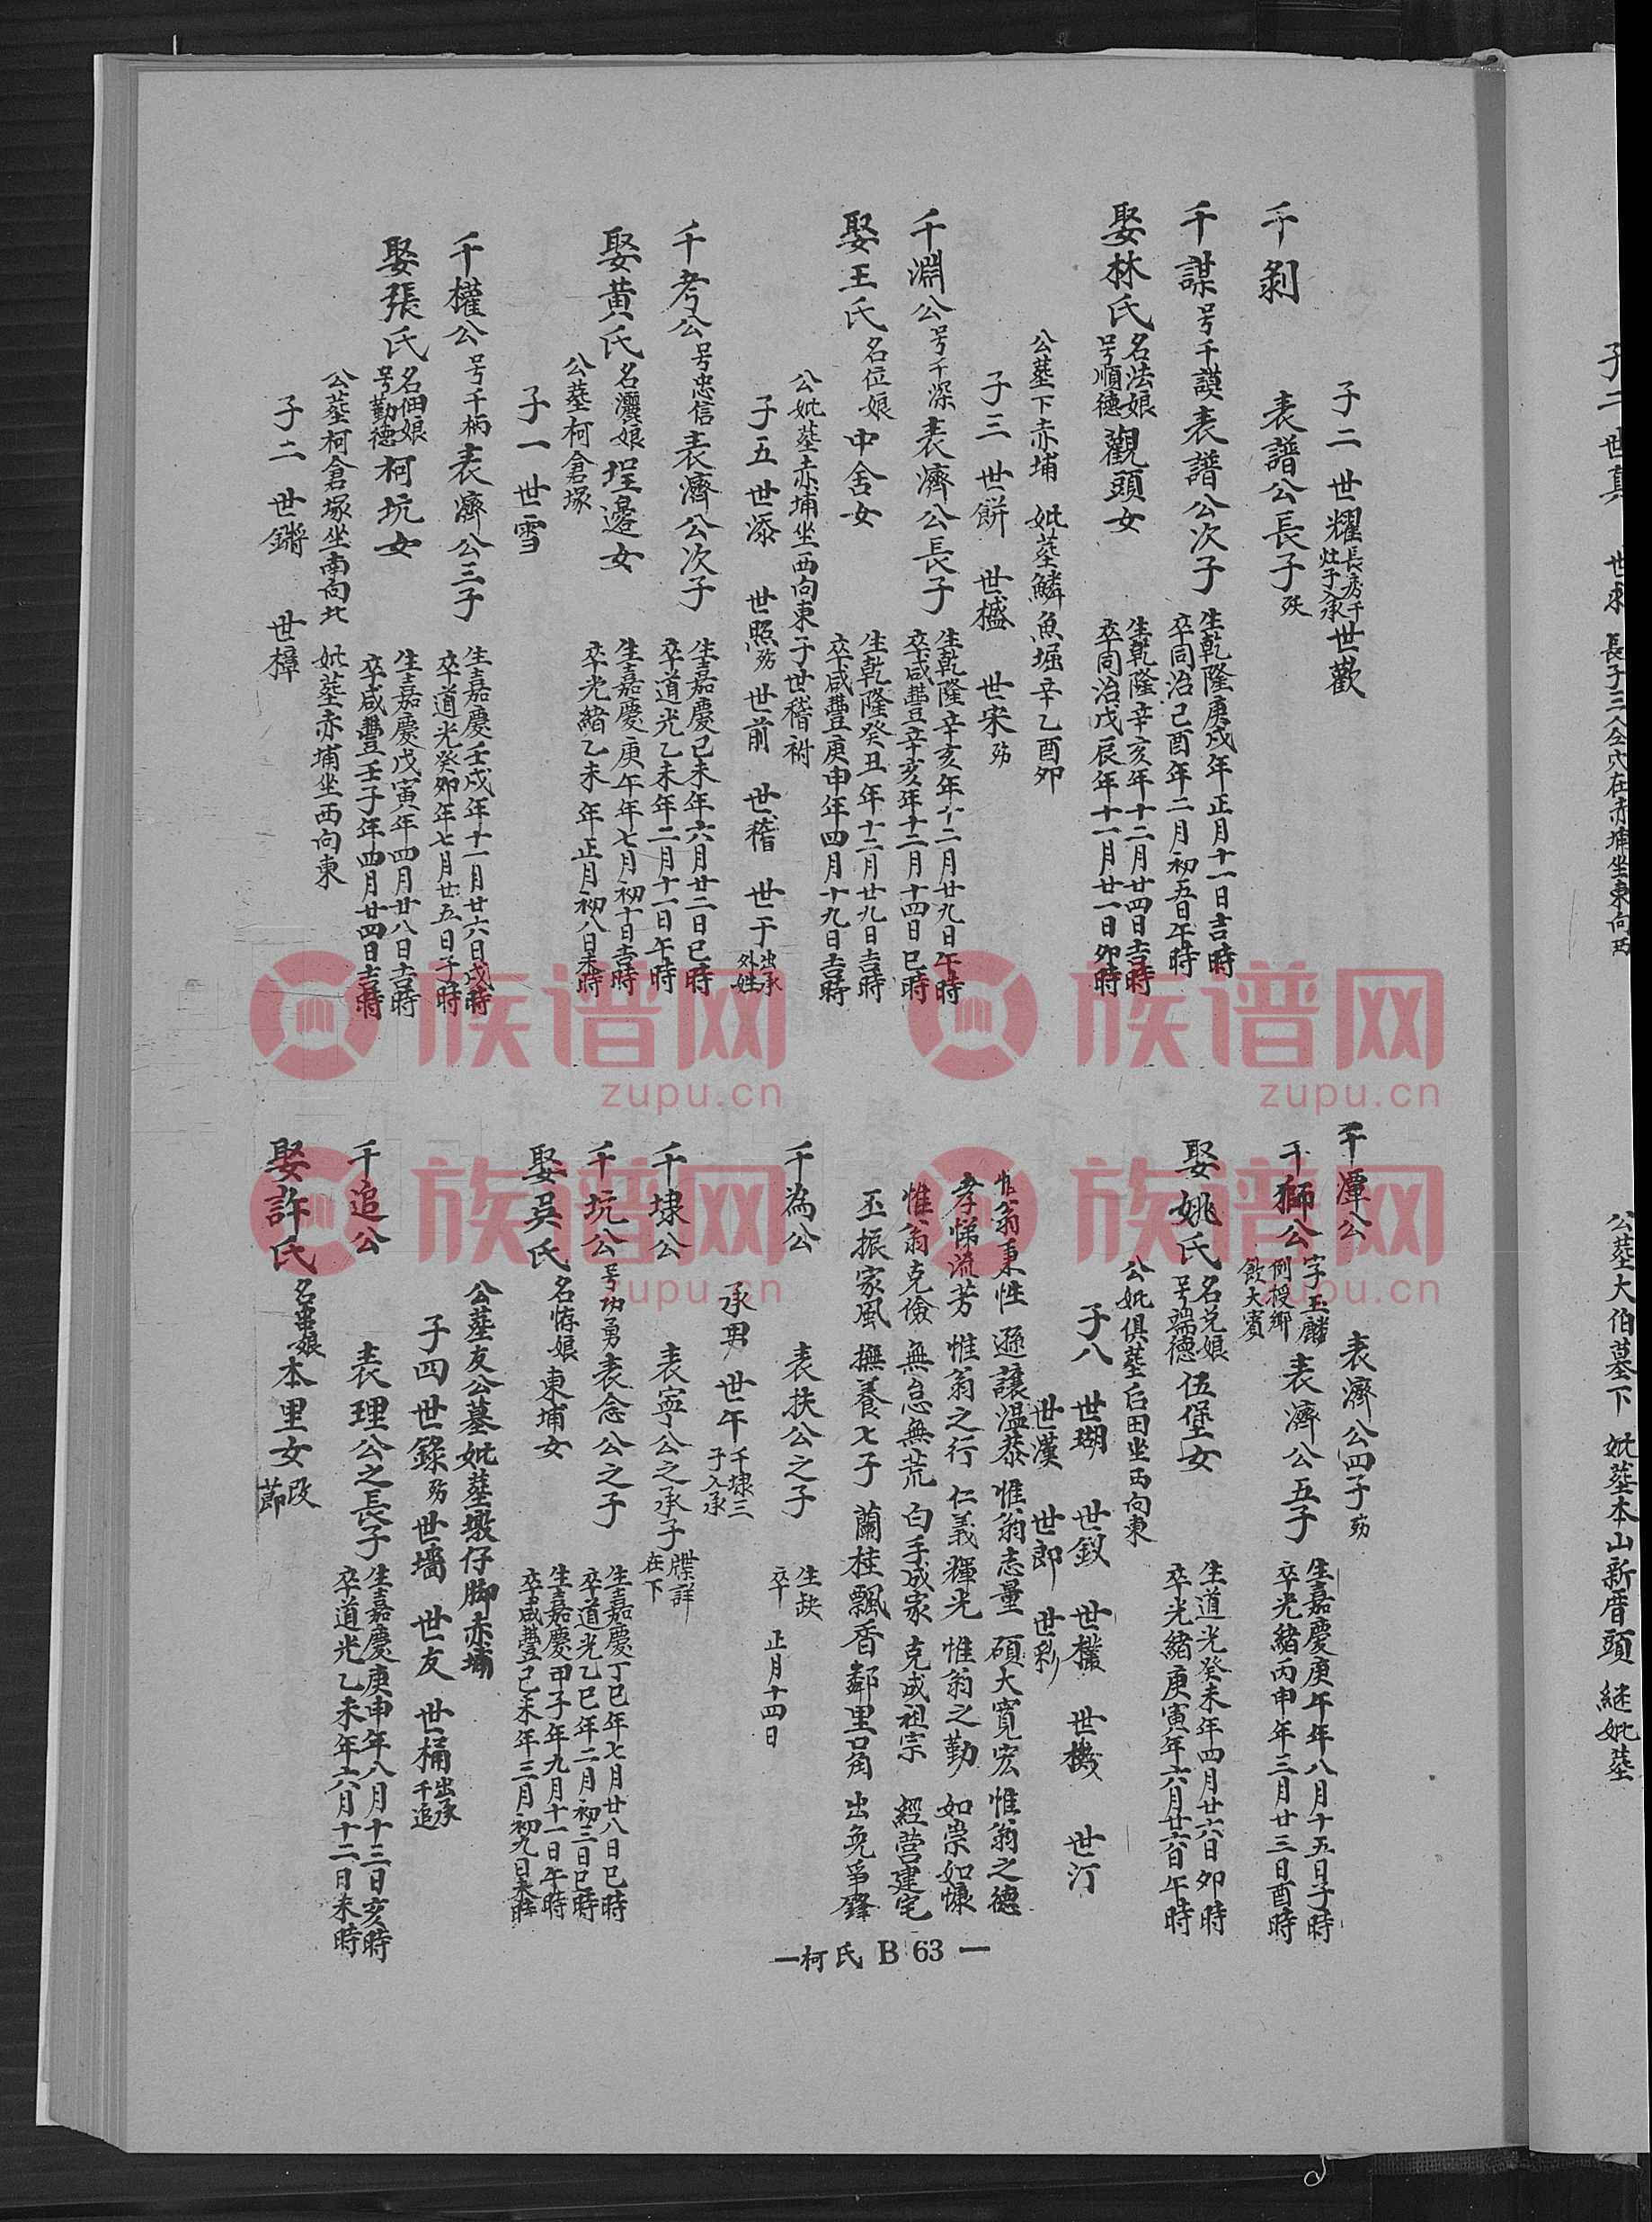 子二 世耀 長秀千灶子入承 世歡
千剝 表譜公長子 殀
千謀 号千謨 表譜公次子 生乾隆庚戌年正月十一日吉時
卒同治己酉年二月初五日午時
娶林氏 名法娘 号順德 觀頭女 生乾隆辛亥年十二月廿四日吉時
卒同治戊辰年十一月廿一日卯時
公塟下赤埔 妣塟鱗魚堀辛乙酉卯
子三 世餅 世盛 世宋 殇
千淵公 号千深 表濟公長子 生乾隆辛亥年十二月廿九日午時
卒咸豐辛亥年十二月十四日巳時
娶王氏 名位娘 中舍女 生乾隆癸丑年十二月廿九日吉時
卒咸豐庚申年四月十九日吉時
公妣塟赤埔坐西向東子世稽祔
子五 世添 世照 殇 世前 世稽 世于 出承外姓
千考公 号忠信 表濟公次子 生嘉慶己未年六月廿二日巳時
卒道光乙未年二月十一日午時
娶黄氏 名灑娘 埕邊女 生嘉慶庚午年七月初十日吉時
卒光緒乙未年正月初八日未時
公塟柯倉塚
子一 世雪
千權公 号千柄 表濟公三子 生嘉慶壬戌年十一月廿六日戌時
卒道光癸卯年七月廿五日子時
娶張氏 名佃娘 号勤德 柯坑女 生嘉慶戊寅年四月廿八日吉時
卒咸豐壬子年四月廿四日吉時
公塟柯倉塚坐南向北 妣塟赤埔坐西向東
子二 世鏘 世樟
千潭公 表濟公四子 殇
千獅公 字玉麟 例授鄉飲大賓 表濟公五子 生嘉慶庚午年八月十五日子時
卒光緒丙申年三月廿三日酉時
娶姚氏 名兑娘 号端德 伍堡女 生道光癸未年四月廿六日卯時
卒光緒庚寅年六月廿六日午時
公妣俱塟后田坐西向東
子八 世瑚 世釵 世欉 世機 世汀
世漢 世郎 世彩
惟翁秉性 遜讓溫恭 惟翁志量 碩大寬宏 惟翁之德
孝悌流芳 惟翁之行 仁義輝光 惟翁之勤 如崇如慷
惟翁克儉 無怠無荒 白手成家 克成祖宗 經营建宅
玉振家風 撫養七子 蘭桂飄香 鄰里口角 出免爭鋒
千為公 表扶公之子 生缺
卒 正月十四日
承男 世午 千埭三子入承
千埭公 表寧公之承子 牒詳在下
千坑公 号功勇 表念公之子 生嘉慶丁巳年七月廿八日巳時
卒道光乙巳年二月初三日巳時
娶吳氏 名悕娘 東埔女 生嘉慶甲子年九月十一日午時
卒咸豐己未年三月初九日未時
公塟友公墓妣塟墩仔脚赤埔
子四 世錄 殇 世墻 世友 世桶 出承千追
千追公 表理公之長子 生嘉慶庚申年八月十三日亥時
卒道光乙未年六月十二日未時
娶許氏 本里女 改節
一柯氏 B 63 一
子二 世真 世求 長子三人仝穴在赤埔坐東向西
公塟大伯墓下 妣塟本山新厝頭 継妣塟
族谱网
zupu.cn
族谱网
zupu.cn
族谱网
zupu.cn
族谱网
zupu.cn